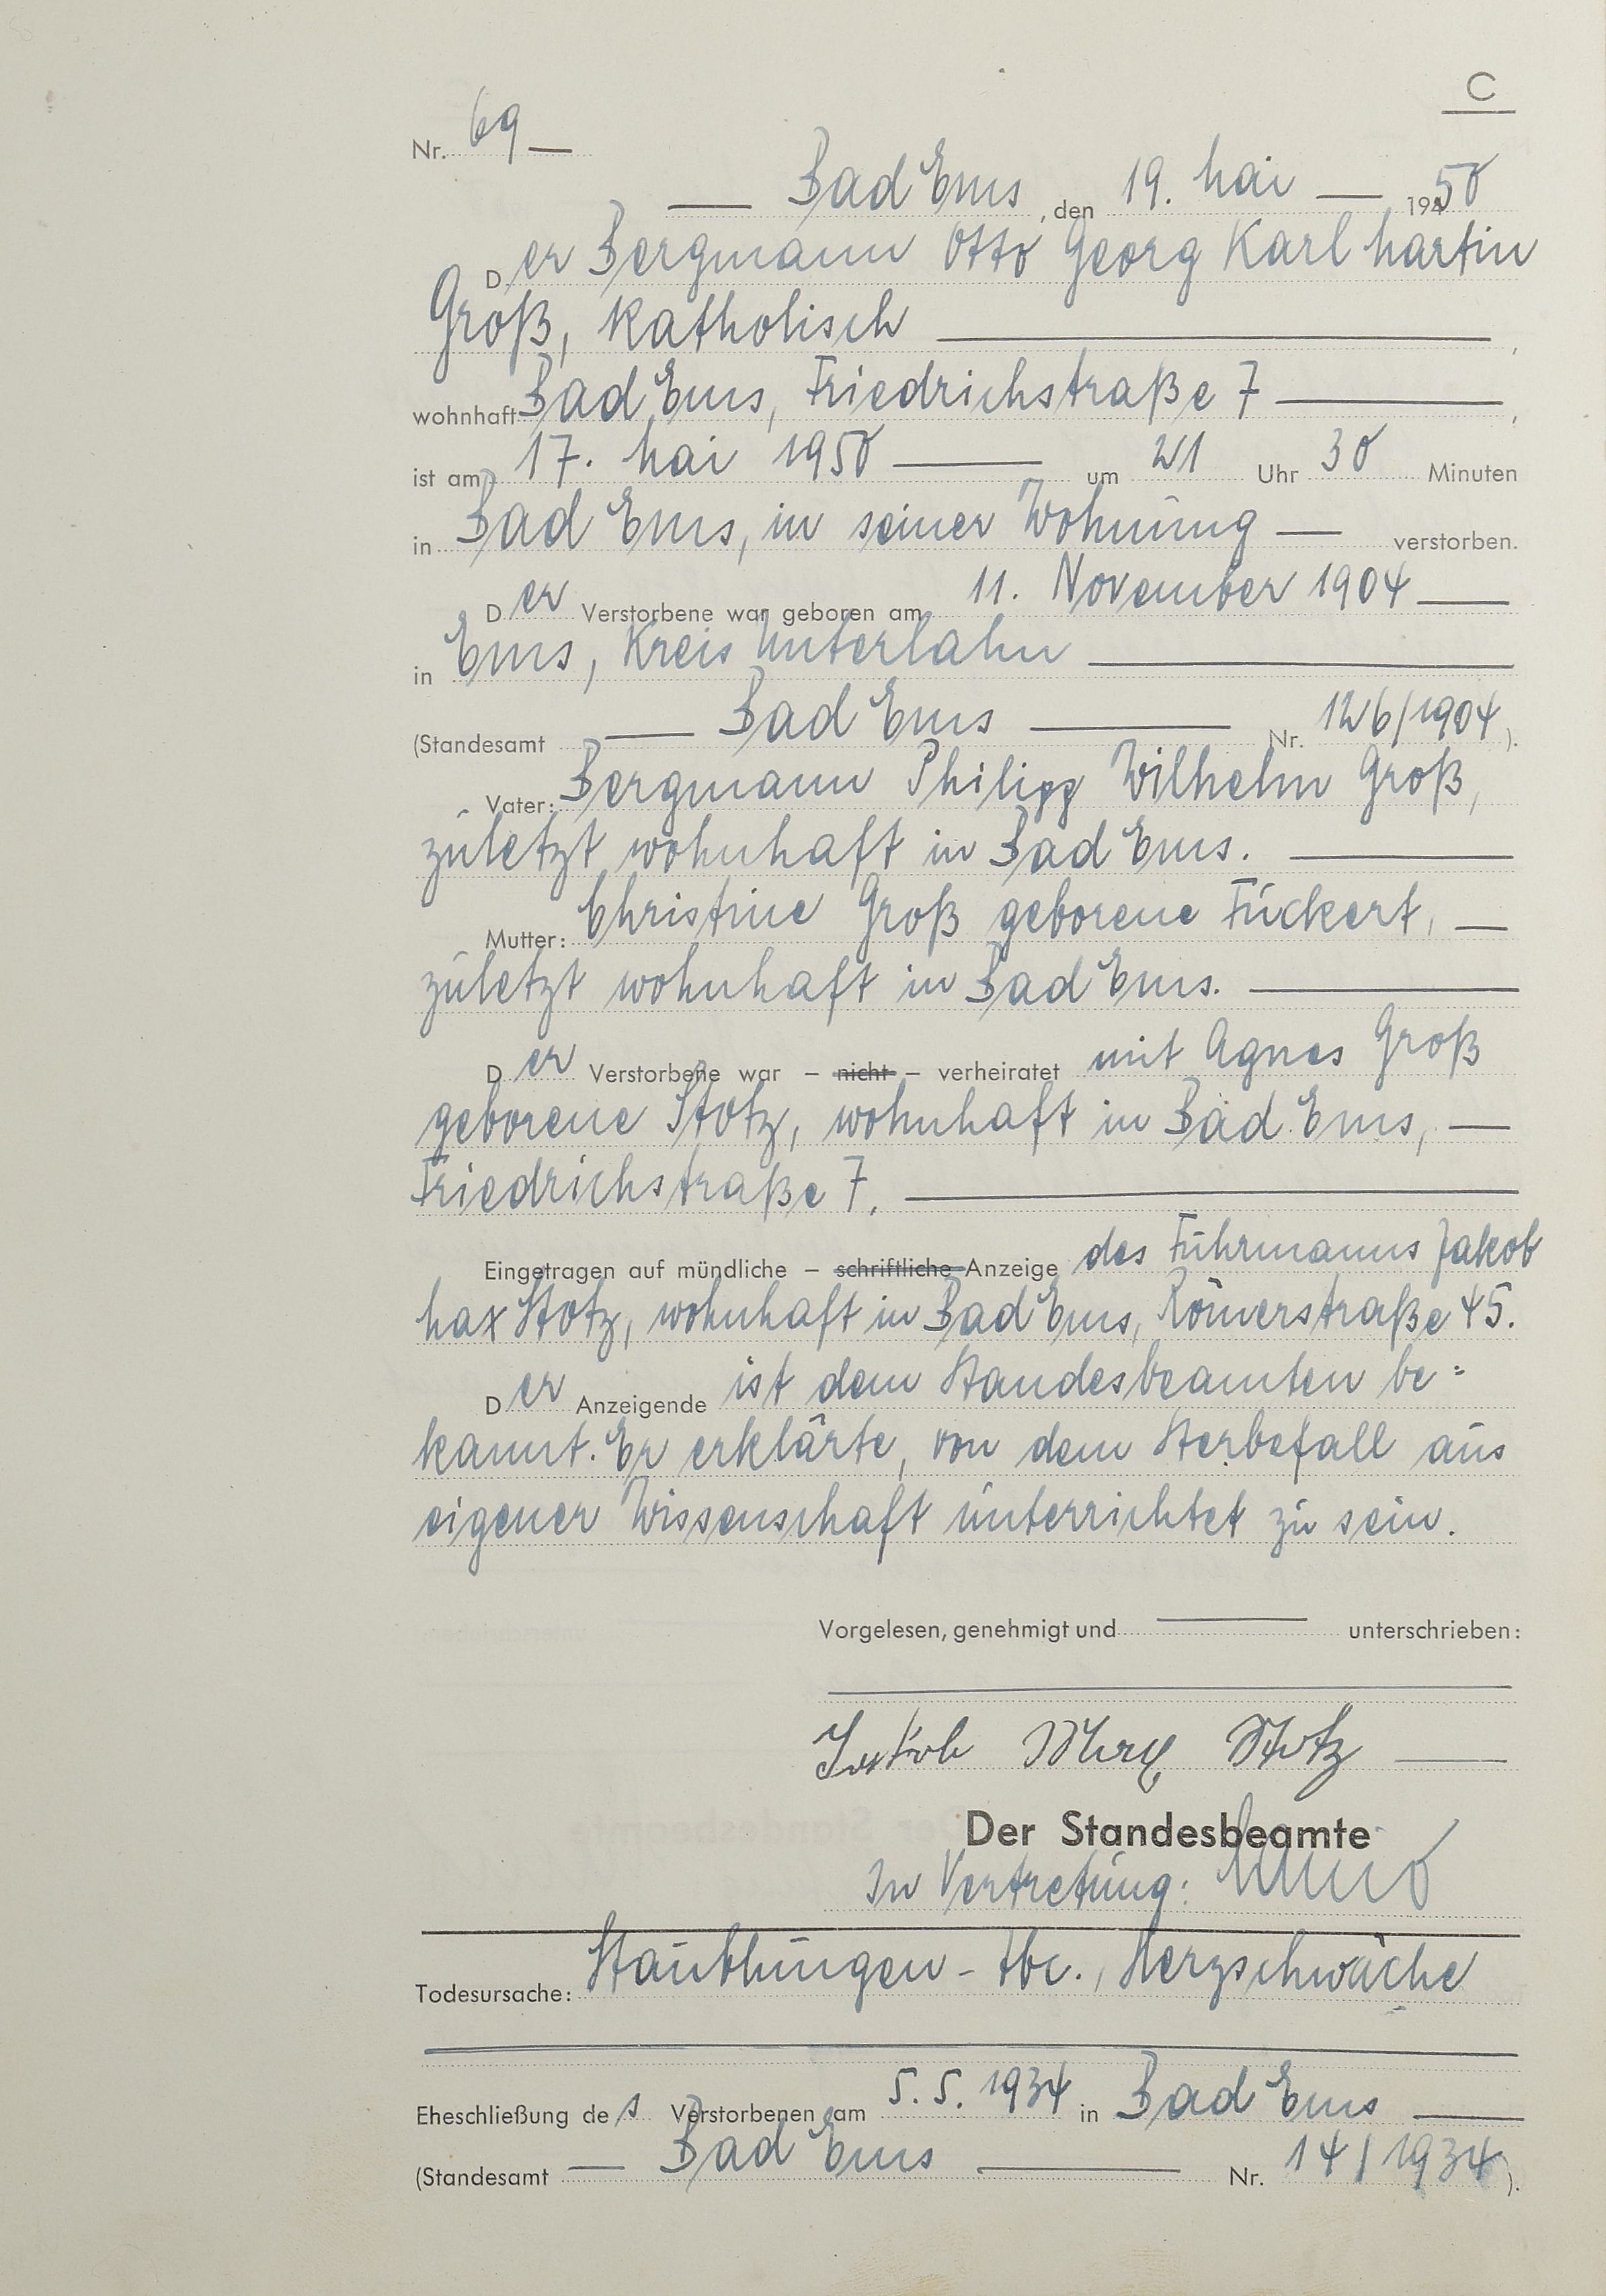 C
Nr. 69
Bad Ems, den 19. Mai 1950
Der Bergmann Otto Georg Karl Martin
Groß, katholisch,
wohnhaft Bad Ems, Friedrichstraße 7,
ist am 17. Mai 1950 um 21 Uhr 30 Minuten
in Bad Ems, in seiner Wohnung verstorben.
Der Verstorbene war geboren am 11. November 1904
in Ems, Kreis Unterlahn
(Standesamt Bad Ems Nr. 126/1904).
Vater: Bergmann Philipp Wilhelm Groß,
zuletzt wohnhaft in Bad Ems.
Mutter: Christine Groß geborene Fückert,
zuletzt wohnhaft in Bad Ems.
Der Verstorbene war – nicht – verheiratet mit Agnes Groß
geborene Stotz, wohnhaft in Bad Ems,
Friedrichstraße 7.
Eingetragen auf mündliche – schriftliche Anzeige des Fuhrmanns Jakob
Max Stotz, wohnhaft in Bad Ems, Römerstraße 45.
Der Anzeigende ist dem Standesbeamten be=
kannt. Er erklärte, von dem Sterbefall aus
eigener Wissenschaft unterrichtet zu sein.
Vorgelesen, genehmigt und unterschrieben:
Jakob Max Stotz
Der Standesbeamte
In Vertretung:
Todesursache: Staublungen-tbc., Herzschwäche
Eheschließung des Verstorbenen am 5.5.1934 in Bad Ems
(Standesamt Bad Ems Nr. 14/1934).